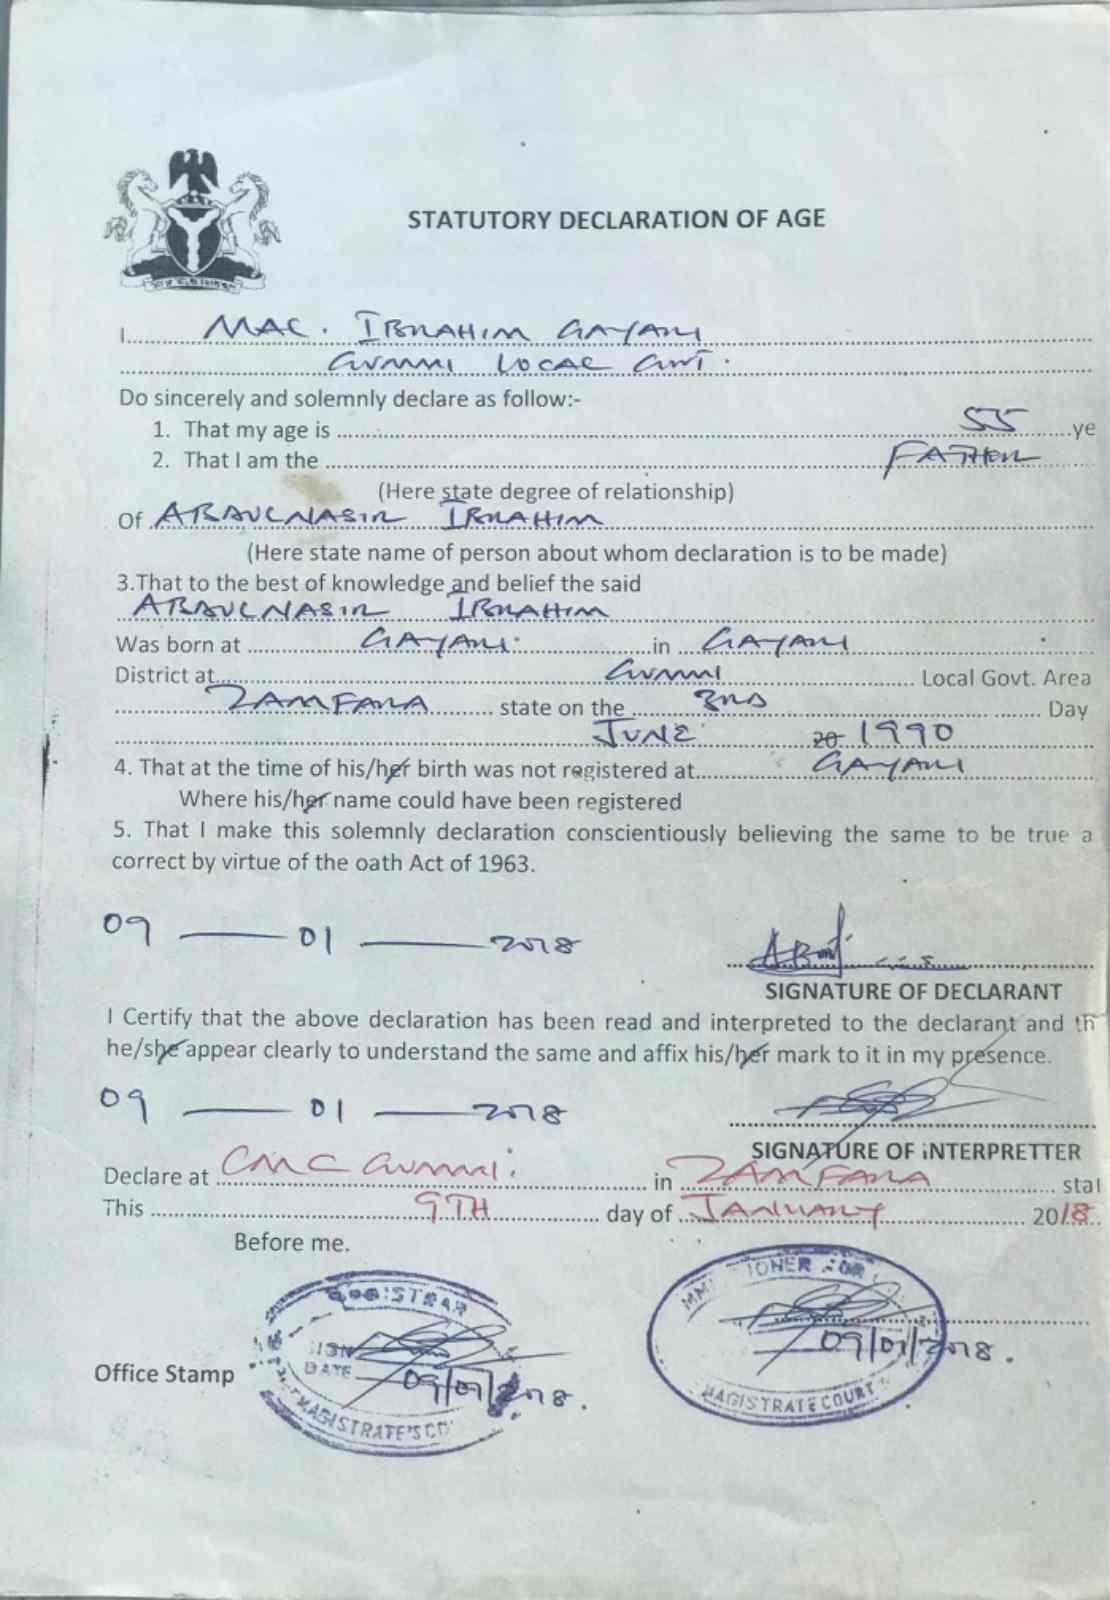 STATUTORY DECLARATION OF AGE
I MAC. IBRAHIM GAYARI
GUMMI LOCAL GVT.
Do sincerely and solemnly declare as follow:-
1. That my age is 55 ye
2. That I am the FATHER
(Here state degree of relationship)
Of ABDULNASIR IBRAHIM
(Here state name of person about whom declaration is to be made)
3.That to the best of knowledge and belief the said
ABDULNASIR IBRAHIM
Was born at GAYARI in GAYARI
District at GUMMI Local Govt. Area
ZAMFARA state on the 3RD Day
JUNE 20 1990
4. That at the time of his/her birth was not registered at GAYARI
Where his/her name could have been registered
5. That I make this solemnly declaration conscientiously believing the same to be true a
correct by virtue of the oath Act of 1963.
09 — 01 — 2018
SIGNATURE OF DECLARANT
I Certify that the above declaration has been read and interpreted to the declarant and th
he/she appear clearly to understand the same and affix his/her mark to it in my presence.
09 — 01 — 2018
SIGNATURE OF INTERPRETTER
Declare at CMC GUMMI. in ZAMFARA stat
This 9TH day of JANUARY 2018
Before me.
REGISTRAR
SIGN
DATE 09/01/2018.
MAGISTRATE'S CO
MMI IONER FOR
09/01/2018.
MAGISTRATE COURT
Office Stamp